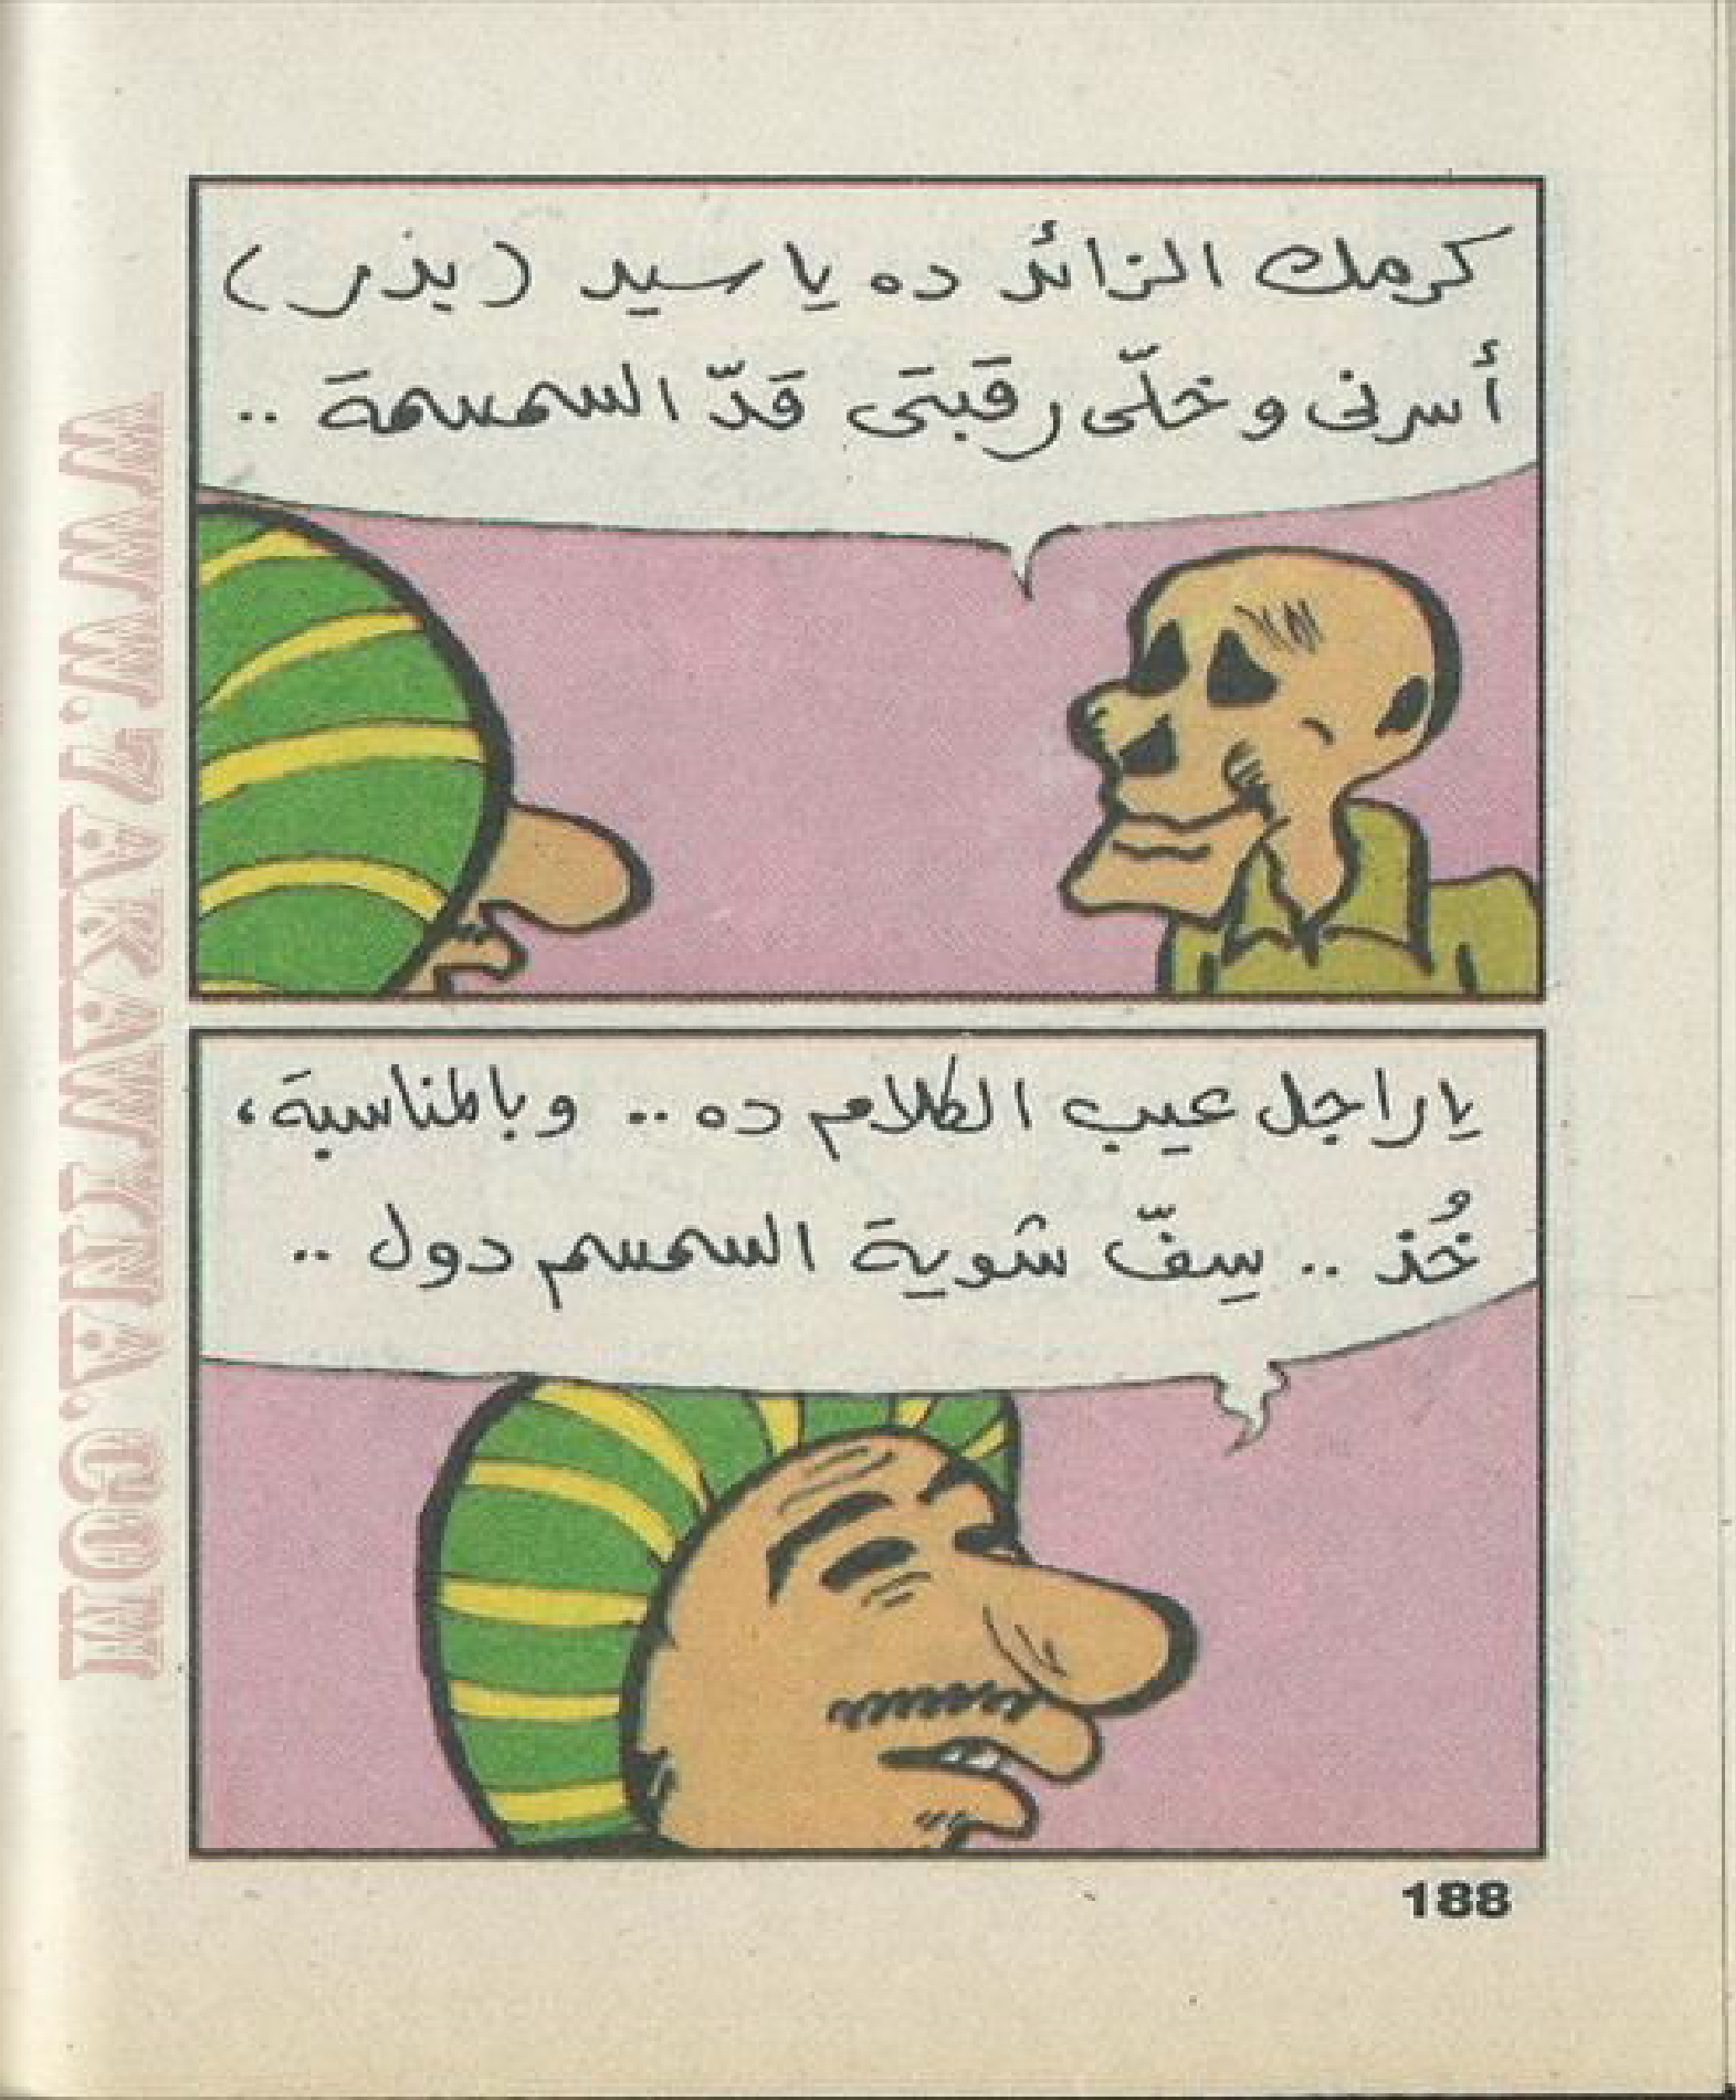 كرمك الزائد ده يا سيد (بذر)
أسرنى وخلّى رقبتى قدّ السمسمة ..
ياراجل عيب الكلام ده .. وبالمناسبة،
خُذ .. سِفّ شوية السمسم دول ..
188
WWW.7AKAWITNA.COM